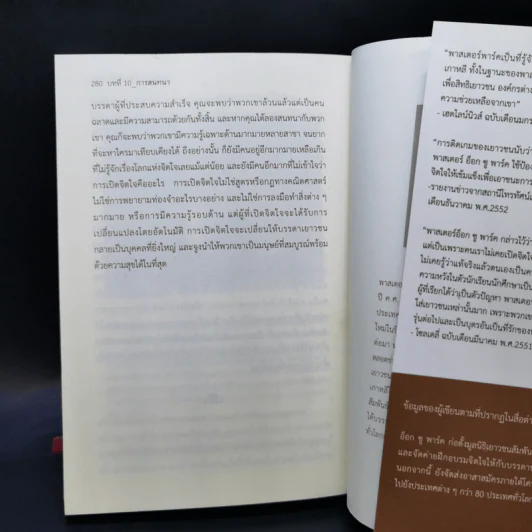 280 บทที่ 10_การสนทนา
บรรดาผู้ที่ประสบความสำเร็จ คุณจะพบว่าพวกเขาล้วนแล้วแต่เป็นคน
ฉลาดและมีความสามารถด้วยกันทั้งสิ้น และหากคุณได้ลองสนทนากับพวก
เขา คุณก็จะพบว่าพวกเขามีความรู้เฉพาะด้านมากมายหลายสาขา จนยาก
ที่จะหาใครมาเทียบเคียงได้ ถึงอย่างนั้น ก็ยังมีคนอยู่อีกมากมายเหลือเกิน
ที่ไม่รู้จักเรื่องโลกแห่งจิตใจเลยแม้แต่น้อย และยังมีคนอีกมากที่ไม่เข้าใจว่า
การเปิดจิตใจคืออะไร การเปิดจิตใจไม่ใช่สูตรหรือกฎทางคณิตศาสตร์
ไม่ใช่การพยายามท่องจำอะไรบางอย่าง และไม่ใช่การลงมือทำสิ่งต่าง ๆ
มากมาย หรือการมีความรู้รอบด้าน แต่ผู้ที่เปิดจิตใจจะได้รับการ
เปลี่ยนแปลงโดยอัตโนมัติ การเปิดจิตใจจะเปลี่ยนให้บรรดาเยาวชน
กลายเป็นบุคคลที่ยิ่งใหญ่ และจูงนำให้พวกเขาเป็นมนุษย์ที่สมบูรณ์พร้อม
ด้วยความสุขได้ในที่สุด
พาสเตอ
ปี ค.ศ.
ประเทศ
ใหม่ในรั
ต่อมา
ตลอดช
เยาวชน
เกาหลี
สัมพันธ์
ได้บรร
ทั่วโลก
"พาสเตอร์พาร์คเป็นที่รู้จั
เกาหลี ทั้งในฐานะของพาส
เพื่อสิทธิเยาวชน องค์กรต่าง
ความช่วยเหลือจากเขา"
- เฮดไลน์นิวส์ ฉบับเดือนมกร
"การติดเกมของเยาวชนนับว่า
พาสเตอร์ อ็อก ซู พาร์ค ใช้ป้อง
จิตใจให้เข้มแข็งเพื่อเอาชนะการ
-รายงานข่าวจากสถานีโทรทัศน์เ
เดือนธันวาคม พ.ศ.2552
"พาสเตอร์อ็อก ซู พาร์ค กล่าวไว้ว่า
แต่เป็นเพราะคนเราไม่เคยเปิดจิตใ
ไม่เคยรู้ว่าแท้จริงแล้วตนเองเป็นค
ความหวังในตัวนักเรียนนักศึกษาเป็น
ผู้ที่เรียกได้ว่าเป็นตัวปัญหา พาสเตอ
ใส่เยาวชนเหล่านั้นมาก เพราะพวกเข
รุ่นต่อไปและเป็นบุตรอันเป็นที่รักของ
- โซลเดลี่ ฉบับเดือนมีนาคม พ.ศ.2551
ข้อมูลของผู้เขียนตามที่ปรากฏในสื่อต่า
อ็อก ซู พาร์ค ก่อตั้งมูลนิธิเยาวชนสัมพัน
และจัดค่ายฝึกอบรมจิตใจให้กับบรรดา
นอกจากนี้ ยังจัดส่งอาสาสมัครภายใต้โค
ไปยังประเทศต่าง ๆ กว่า 80 ประเทศทั่วโล